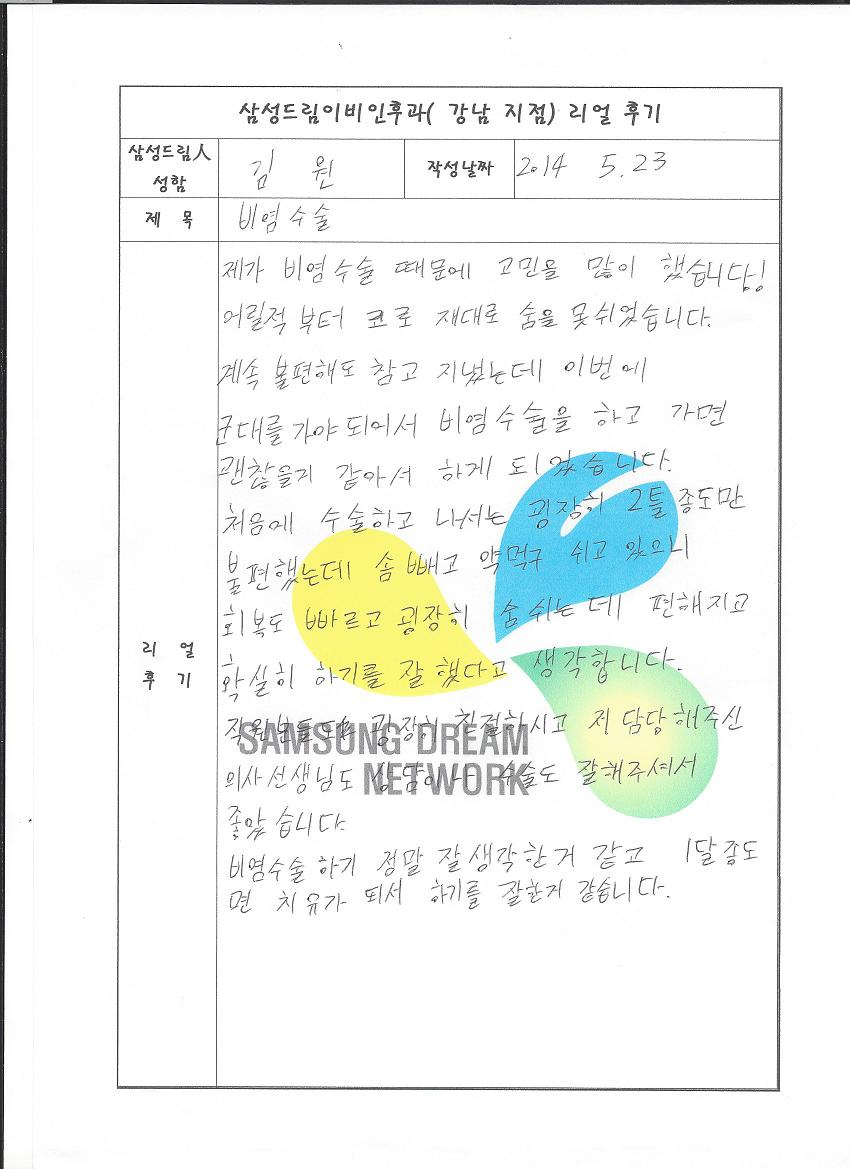 삼성드림이비인후과( 강남 지점) 리얼 후기
삼성드림人
성함
김 원
작성날짜
2014 5.23
제 목
비염수술
리 얼
후 기
제가 비염수술 때문에 고민을 많이 했습니다!
어릴적 부터 코로 재대로 숨을 못쉬었습니다.
계속 불편해도 참고 지냈는데 이번에
군대를 가야되어서 비염수술을 하고 가면
괜찮을거 같아서 하게 되었습니다.
처음에 수술하고 나서는 굉장히 2틀종도만
불편했는데 솜 빼고 약먹구 쉬고 있으니
회복도 빠르고 굉장히 숨쉬는데 편해지고
확실히 하기를 잘했다고 생각합니다.
직원분들도 굉장히 친절하시고 저 담당해주신
의사선생님도 상담이나 수술도 잘해주셔서
좋았습니다.
비염수술 하기 정말 잘생각한거 같고 1달종도
면 치유가 되서 하기를 잘한거 같습니다.
SAMSUNG DREAM
NETWORK